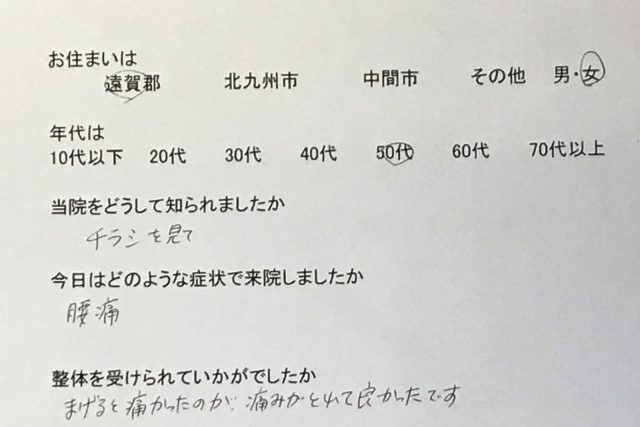 お住まいは
遠賀郡 北九州市 中間市 その他 男・女
年代は
10代以下 20代 30代 40代 50代 60代 70代以上
当院をどうして知られましたか
チラシを見て
今日はどのような症状で来院しましたか
腰痛
整体を受けられていかがでしたか
まげると痛かったのが、痛みがとれて良かったです